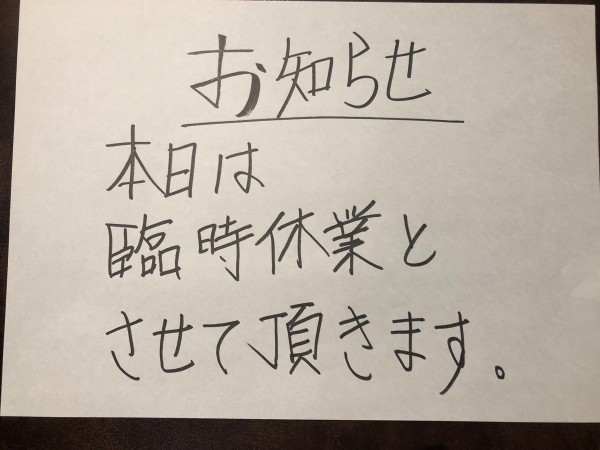 お知らせ
本日は
臨時休業と
させて頂きます。